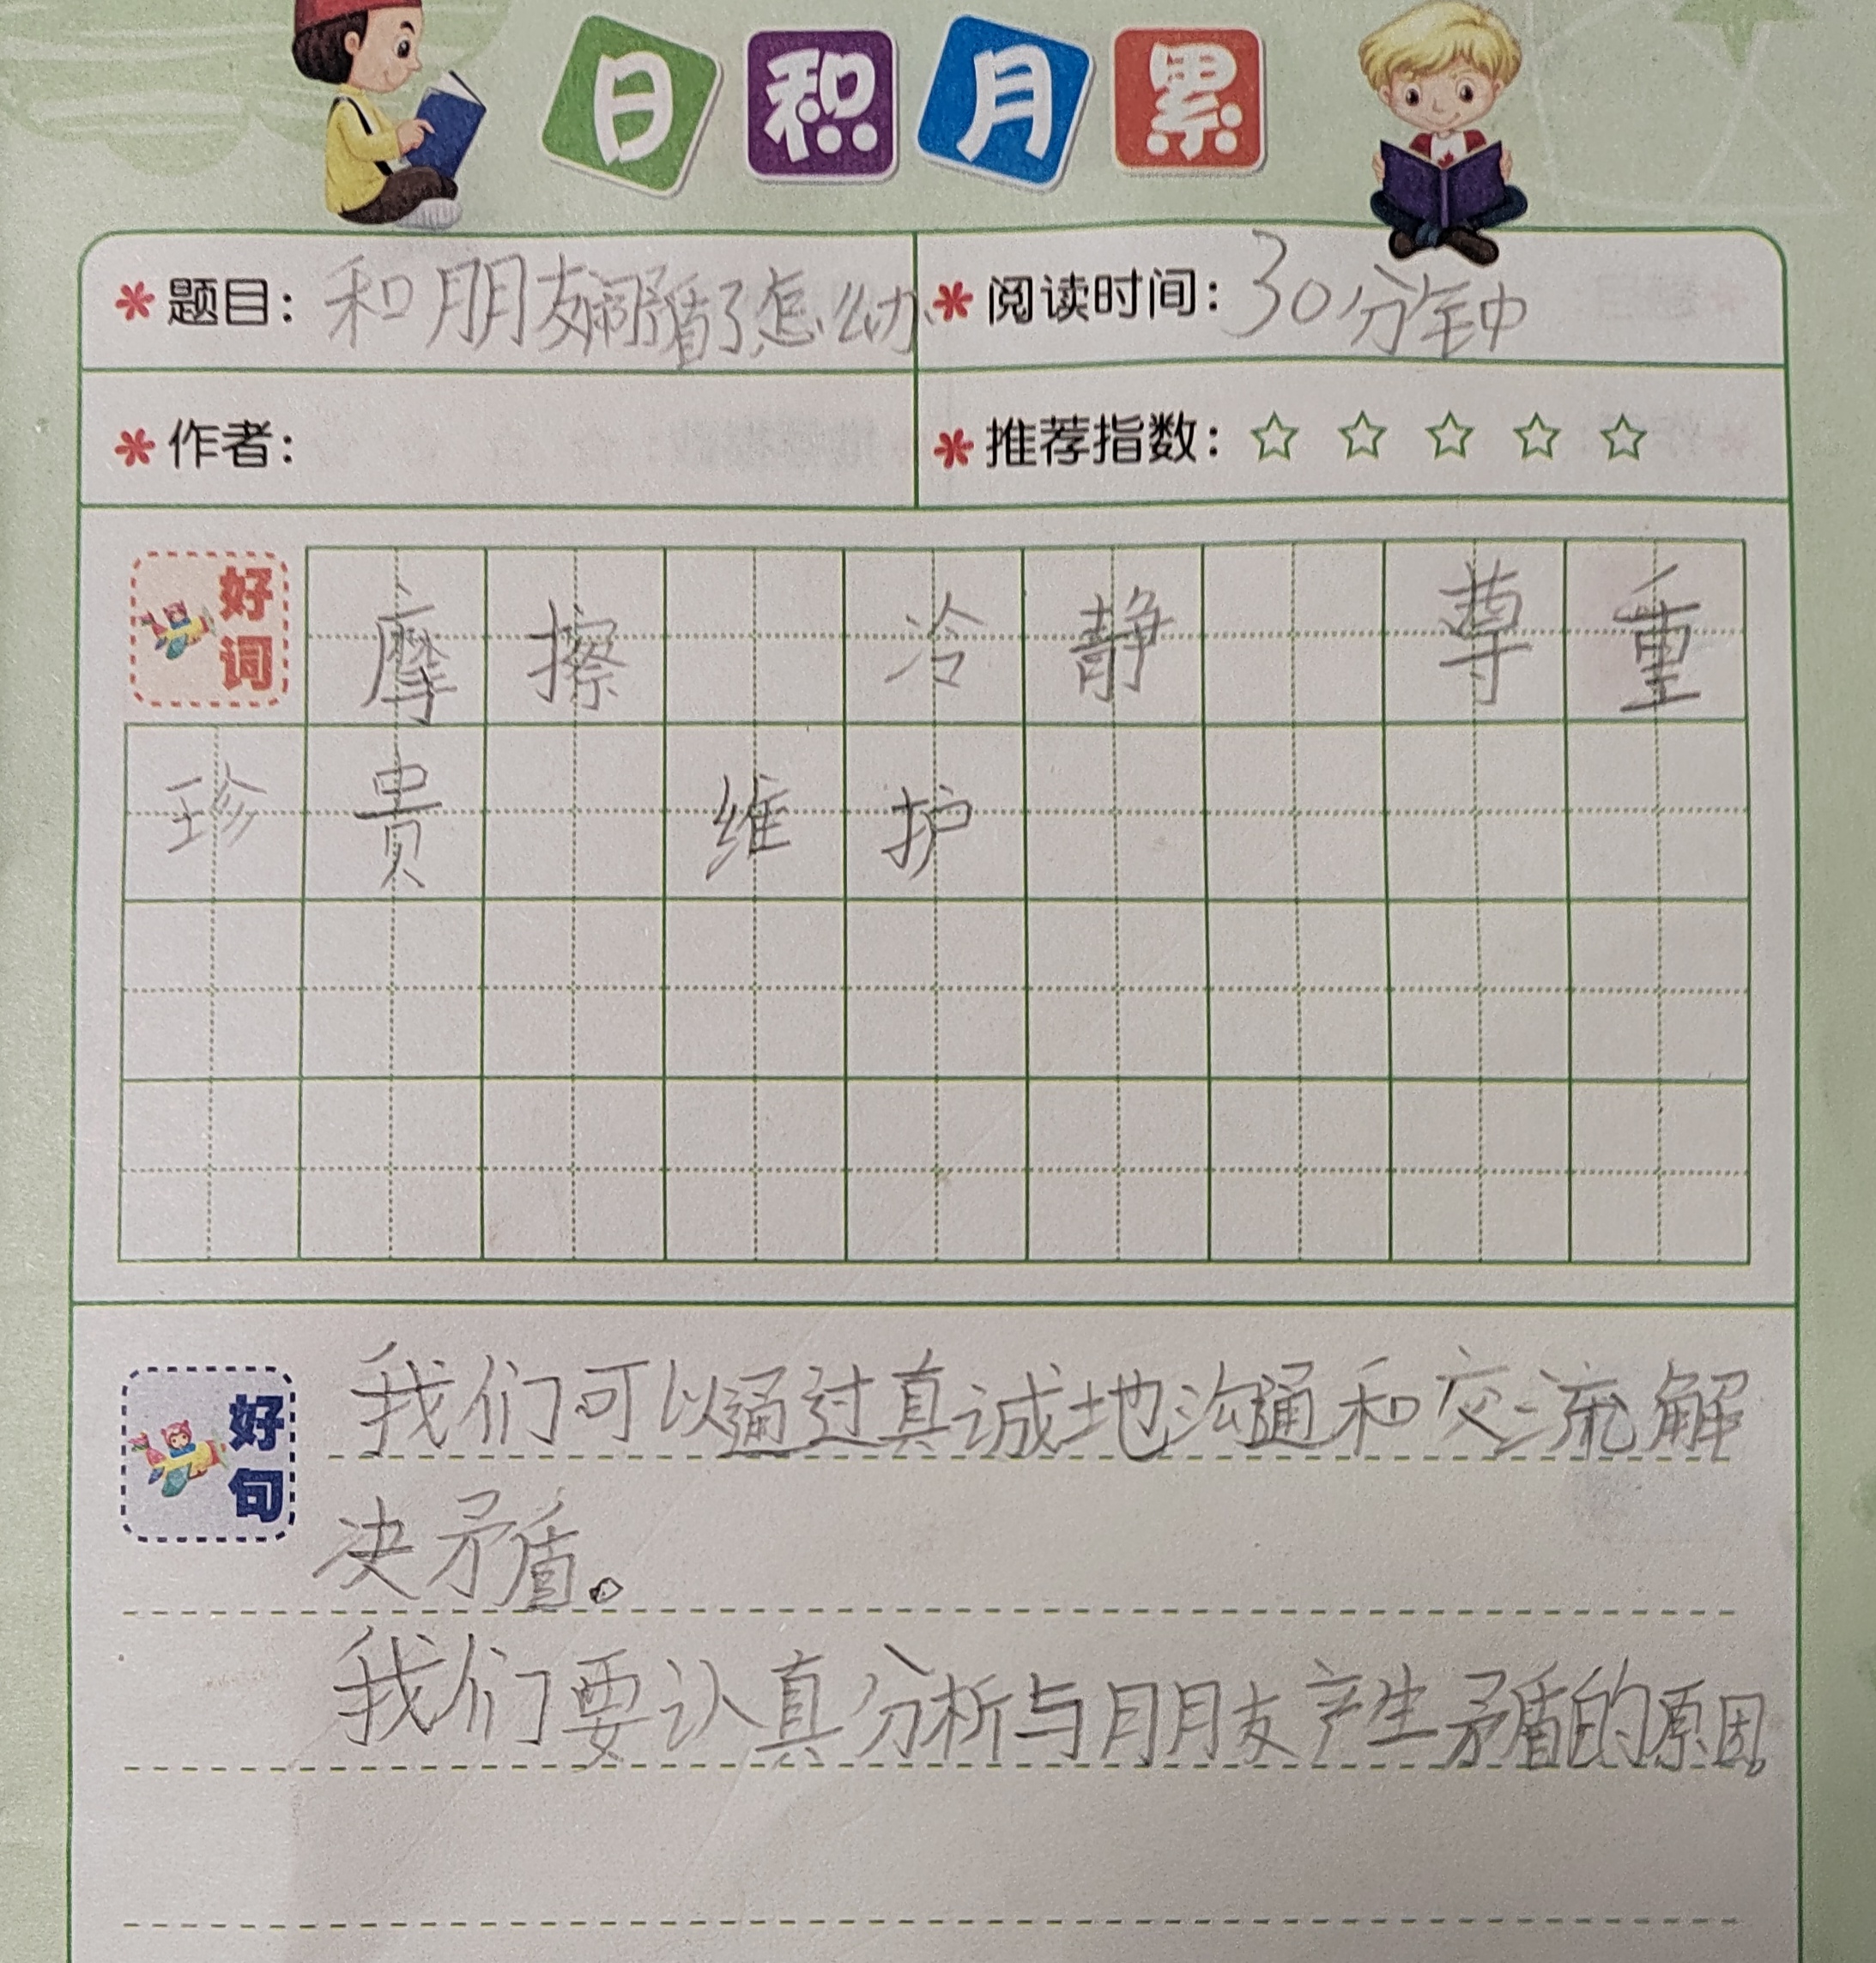 日积月累
题目：和朋友闹矛盾了怎么办 阅读时间：30分钟
作者： 推荐指数：☆☆☆☆☆
好词 摩擦 冷静 尊重
珍贵 维护
好句 我们可以通过真诚地沟通和交流解
决矛盾。
我们要认真分析与朋友产生矛盾的原因。